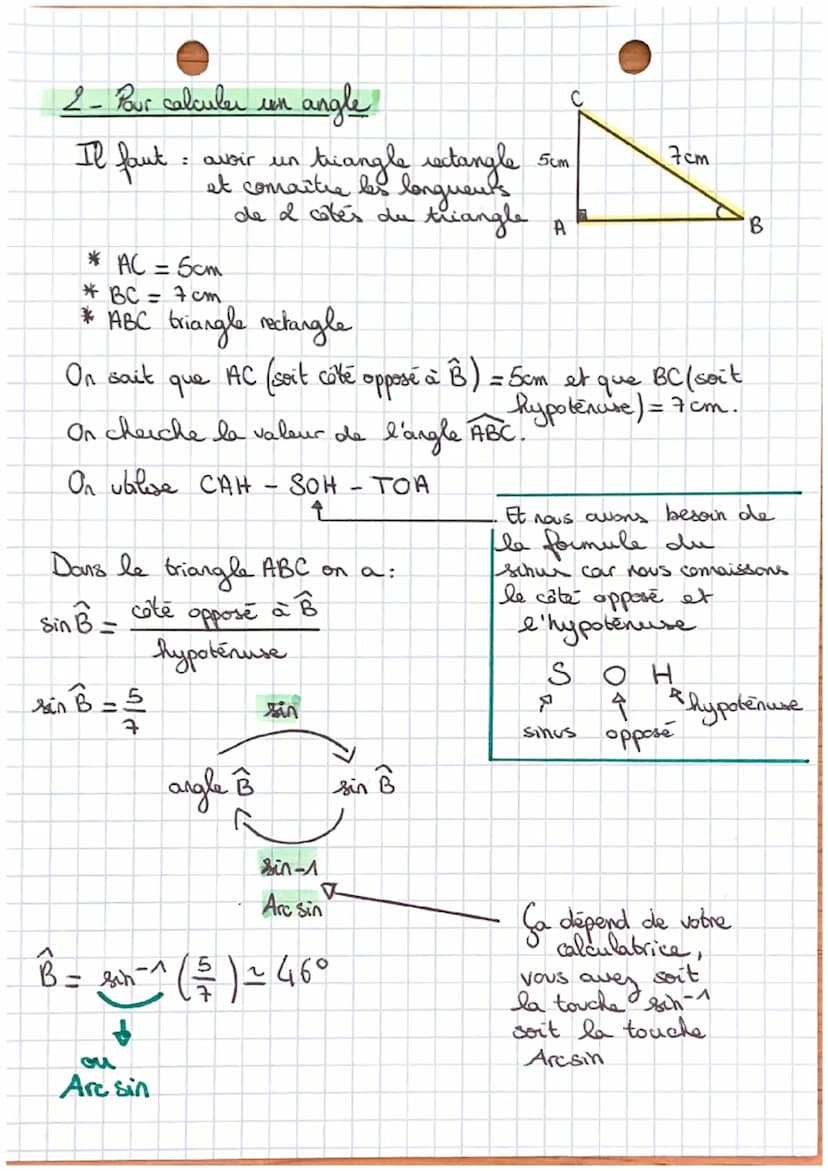 2 - Pour calculer un angle
C
Il faut : avoir un triangle rectangle
5cm
7cm
et connaître les longueurs
de 2 côtés du triangle
A
B
* AC = 5cm
* BC = 7cm
* ABC triangle rectangle
On sait que AC (soit côté opposé à B̂) = 5cm et que BC (soit
hypoténuse) = 7cm.
On cherche la valeur de l'angle ABC.
On utilise CAH - SOH - TOA
Et nous avons besoin de
la formule du
sinus car nous connaissons
le côté opposé et
l'hypoténuse
S O H
sinus opposé hypoténuse
Dans le triangle ABC on a :
sin B̂ = côté opposé à B̂ / hypoténuse
sin B̂ = 5/7
sin
angle B̂ sin B̂
sin-1
Arc sin
Ça dépend de votre
calculatrice,
vous avez soit
la touche sin-1
soit la touche
Arcsin
B̂ = sin-1 (5/7) ≃ 46°
ou
Arc sin